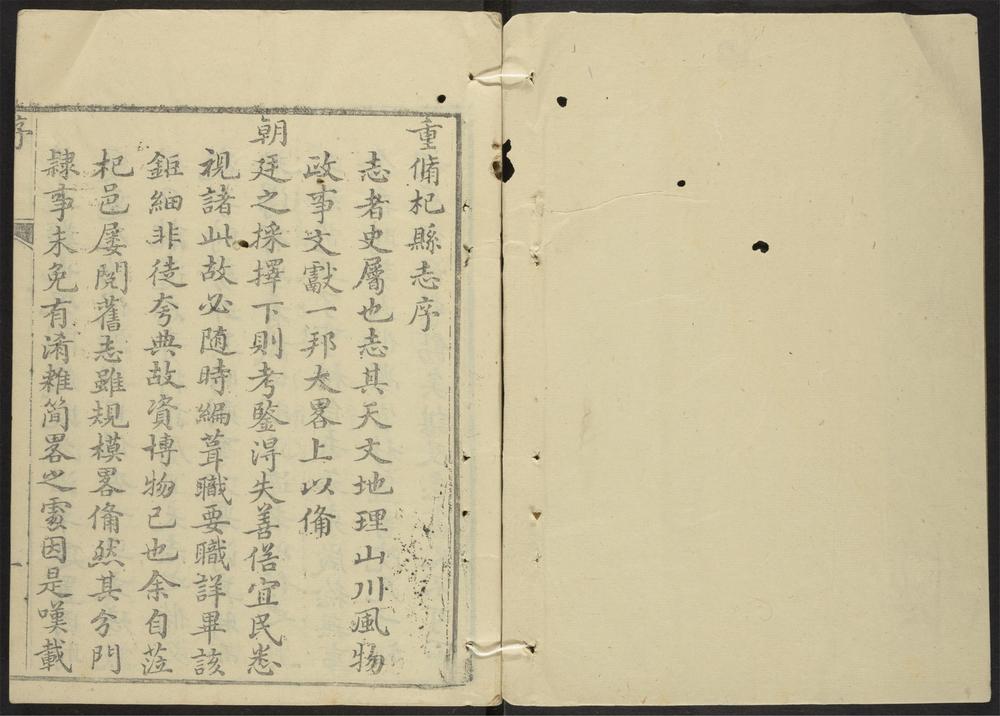 重脩杞縣志序
志者史屬也志其天文地理山川風物
政事文獻一邦大畧上以俻
朝廷之採擇下則考鑒得失善俗宜民悉
視諸此故必随時編葺職要職詳畢該
鉅細非徒夸典故資博物已也余自蒞
杞邑屢閱舊志雖規模畧俻然其分門
隸事未免有淆雜简畧之處因是嘆載
序